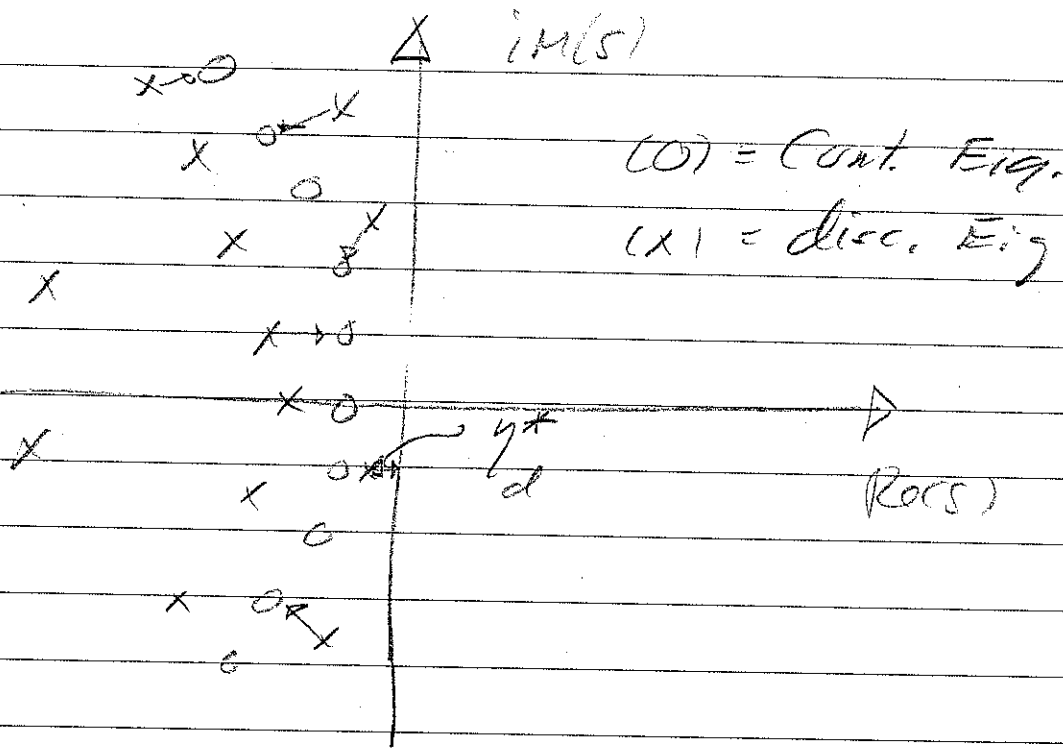 iM(s)
(O) = Cont. Eig.
(X) = disc. Eig
y*
d
Re(s)